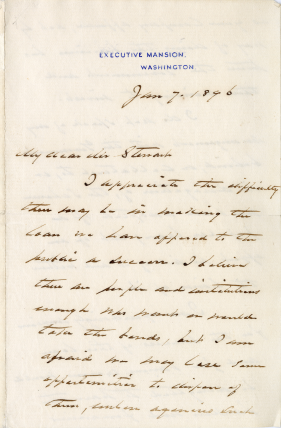 EXECUTIVE MANSION,
WASHINGTON.
Jan 7. 1896
My dear Mr Stewart
I appreciate the difficulty
there may be in making the
loan we have offered to the
public a success. I believe
there are people and institutions
enough who wants or would
take the bonds, but I am
afraid we may lose some
opportunities to dispose of
them, unless agencies such